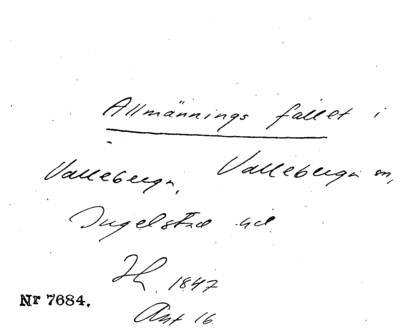 Allmännings fallet i
Valleberga, Valleberga sn,
Ingelstad hd
1847
Akt 16
Nr 7684.